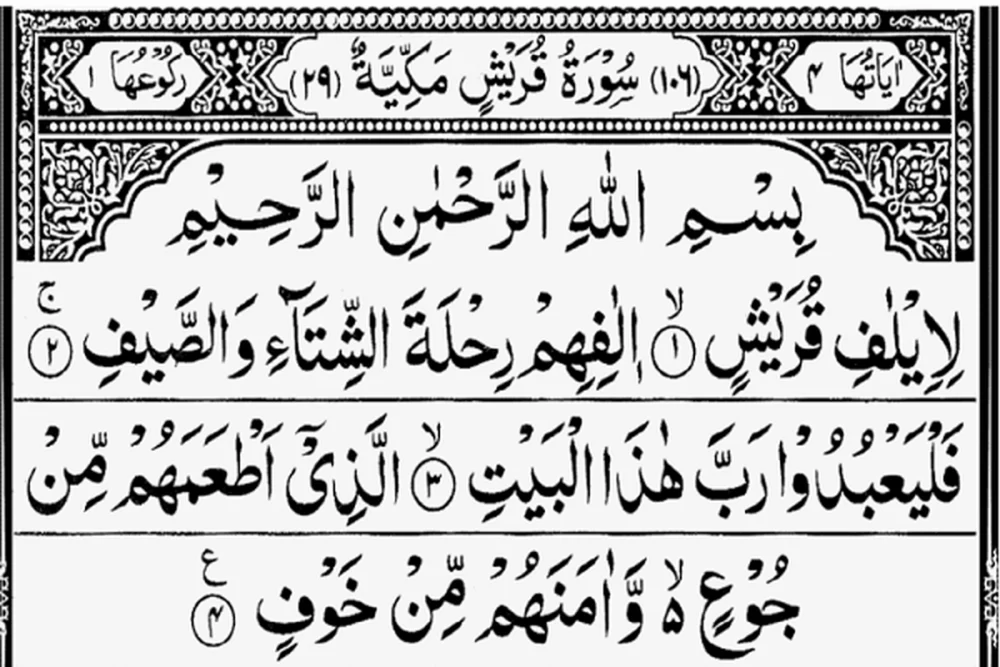 اٰيَاتُهَا ۴ (۱۰۶) سُوْرَةُ قُرَيْشٍ مَكِّيَّةٌ (۲۹) رُكُوْعُهَا ۱
بِسْمِ اللّٰهِ الرَّحْمٰنِ الرَّحِيْمِ
لِاِيْلٰفِ قُرَيْشٍ ۙ‏﴿۱﴾ اٖلٰفِهِمْ رِحْلَةَ الشِّتَآءِ وَالصَّيْفِ ۚ‏﴿۲﴾
فَلْيَعْبُدُوْا رَبَّ هٰذَا الْبَيْتِ ۙ‏﴿۳﴾ الَّذِيْۤ اَطْعَمَهُمْ مِّنْ
جُوْعٍ ۙ۬ وَّاٰمَنَهُمْ مِّنْ خَوْفٍ ‏﴿۴﴾ ع